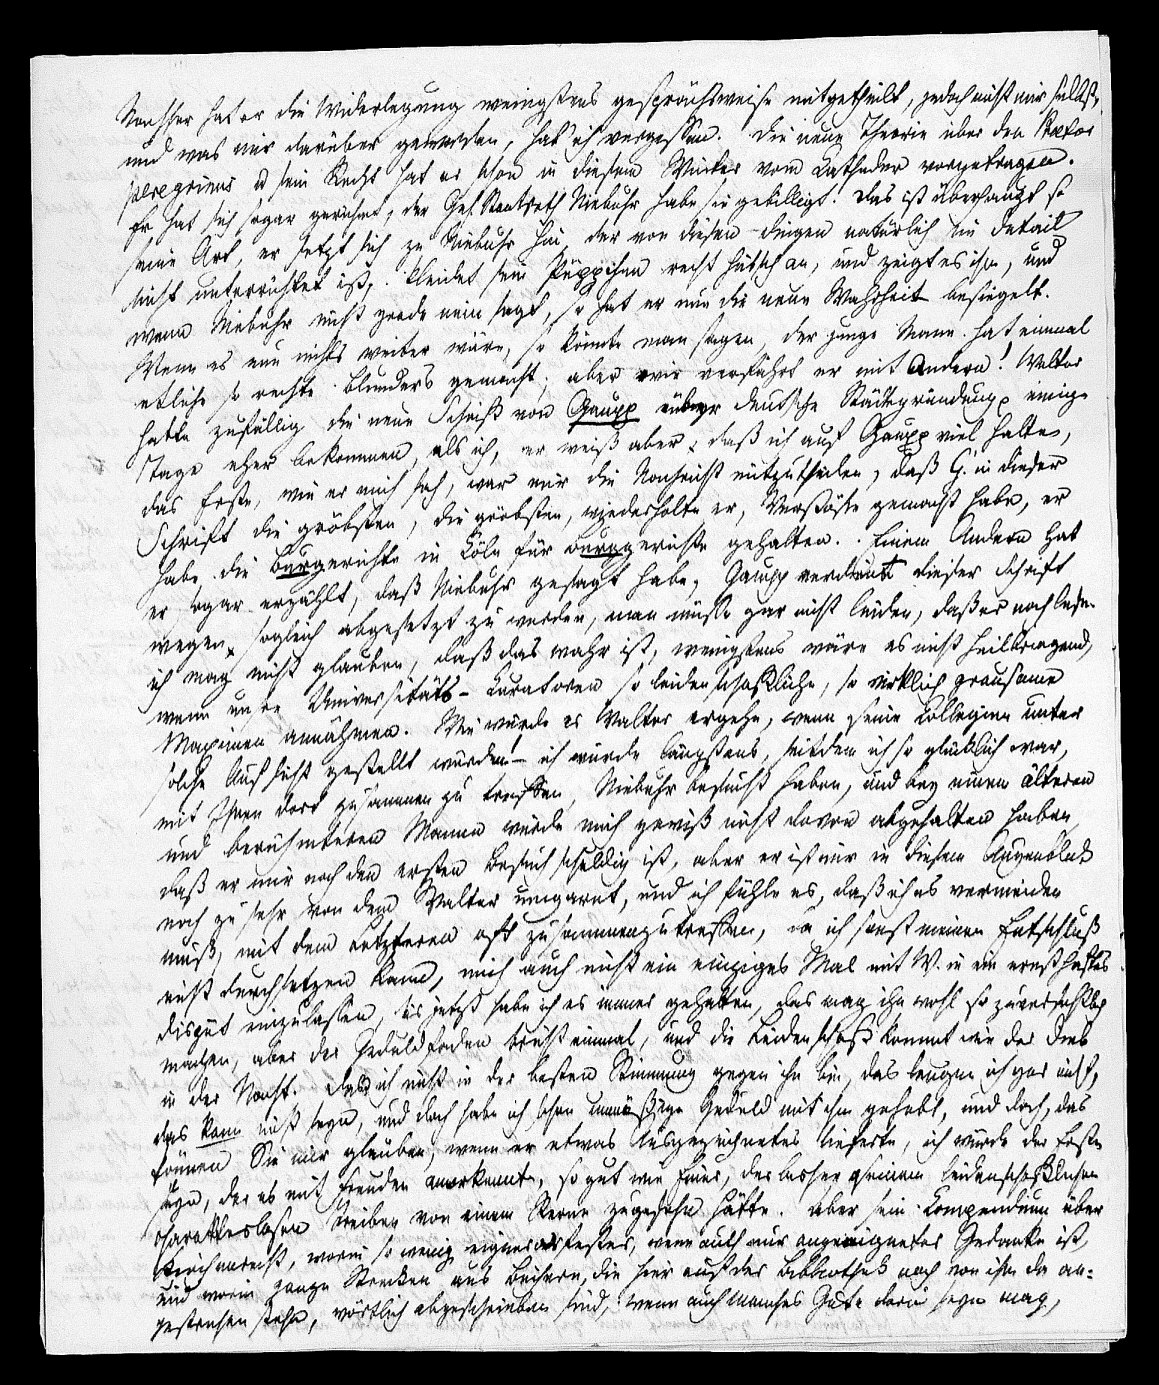 Nachher hat er die Widerlegung wenigstens gesprächsweise mitgetheilt, jedoch nicht mir selbst,
und was mir darüber geworden, hab' ich vergessen. Die neue Theorie über den Praetor
peregrinus u sein Recht hat er schon in diesem Winter vom Catheder vorgetragen.
Er hat sich sogar gerühmt, der Geh. Staatsrath Niebuhr habe sie gebilligt. Das ist überhaupt so
seine Art, er setzt sich zu Niebuhr hin, der von diesen Dingen natürlich im Detail
nicht unterrichtet ist, kleidet sein Püppchen recht hübsch an, und zeigt es ihm, und
wenn Niebuhr nicht grade nein sagt, so hat er nun die neue Wahrheit besiegelt.
Wenn es nun nichts weiter wäre, so könnte man sagen, der junge Mann hat einmal
etliche so rechte Blunders gemacht; aber wie verfährt er mit Andern! Walter
hatte zufällig die neue Schrift von Gaupp über deutsche Städtegründung einige
Tage eher bekommen, als ich, er weiß aber, daß ich auf Gaupp viel halte,
das Erste, wie er mich sah, war mir die Nachricht mitzutheilen, daß G. in dieser
Schrift die gröbsten, die gröbsten, wiederholte er, Verstöße gemacht habe, er
habe die Burgerichte in Cöln für Burggerichte gehalten. Einem Andern hat
er sogar erzählt, daß Niebuhr gesagt habe, Gaupp verdient dieser Schrift
wegen, sogleich abgesetzt zu werden, man müsse gar nicht leiden, daß er noch lese.
ich mag nicht glauben, daß das wahr ist, wenigstens wäre es nicht heilbringend,
wenn unsre Universitäts-Curatoren so leidenschaftliche, so wirklich grausame
Maximen annähmen. Wie würde es Walter ergehn, wenn seine Collegien unter
solche Aufsicht gestellt würden! – ich würde längstens, seitdem ich so glücklich war,
mit Ihnen dort zusammen zu treffen, Niebuhr besucht haben, und bey einem älteren
und berühmteren Manne würde mich gewiß nicht davon abgehalten haben,
daß er mir noch den ersten Besuch schuldig ist, aber er ist mir in diesem Augenblick
noch zu sehr von dem Walter umgarnt, und ich fühle es, daß ich es vermeiden
muß, mit dem Letzteren oft zusammenzutreffen, da ich sonst meinen Entschluß
nicht durchsetzen kann, mich auch nicht ein einziges Mal mit W. in ein ernsthaftes
Disput einzulassen, bis jetzt habe ich es immer gehalten, das mag ihn wohl so zuversichtlich
machen, aber der Geduldfaden bricht einmal, und die Leidenschaft kommt wie der Dieb
in der Nacht. Daß ich nicht in der besten Stimmung gegen ihn bin, das leugne ich gar nicht,
das kann nicht seyn, und doch habe ich schon unmäßige Geduld mit ihm gehabt, und doch, das
können Sie mir glauben, wenn er etwas Ausgezeichnetes lieferte, ich würde der Erste
seyn, der es mit Freuden anerkennte, so gut wie Einer, der bisher seinem leidenschaftlichen
charakterlosen Treiben von einem Sterne zugesehn hätte. Aber sein Compendium über
Kirchenrecht, worin so wenig eigner als fester, wenn auch nur angeeigneter Gedanke ist,
und worin ganze Strecken aus Büchern, die hier auf der Bibliothek noch von ihm da an=
gestrichen stehn, wörtlich abgeschrieben sind, wenn auch manches Gute darin seyn mag,